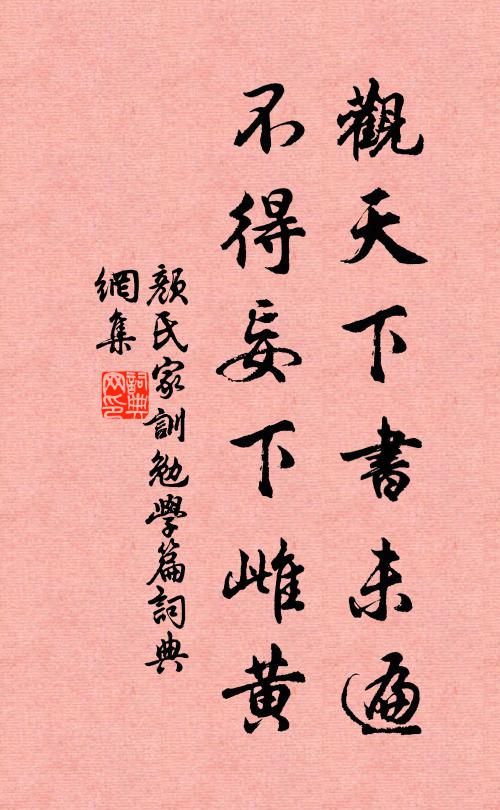 觀天下書未遍
不得妄下雌黃
顏氏家訓勉學篇詞典
網集
詞典
网印